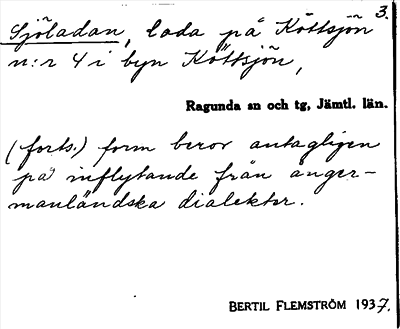 3.
Sjöladan, lada på Köttsjön
n:r 4 i byn Köttsjön,
Ragunda sn och tg, Jämtl. län.
(forts.) form beror antagligen
på inflytande från ånger-
manländska dialekter.
BERTIL FLEMSTRÖM 1937.